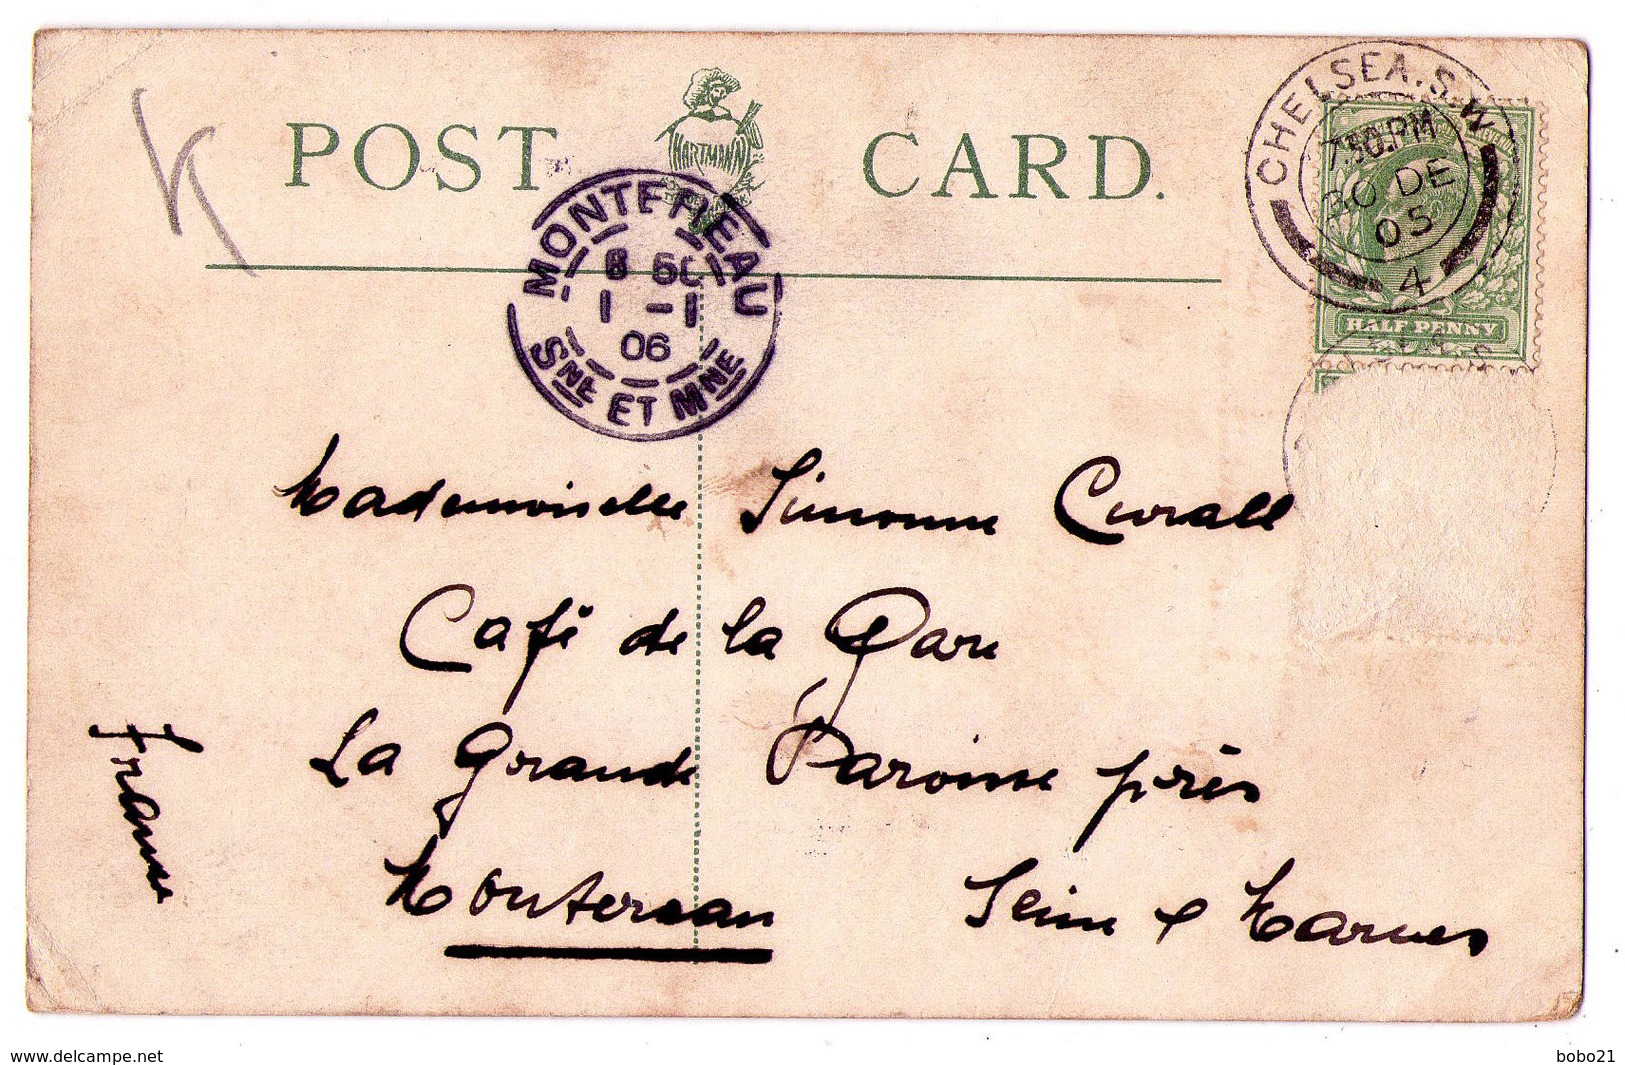 POST CARD.
HARTMANN
CHELSEA. S.W.
7.30.PM
30 DE
05
4
HALF PENNY
MONTEREAU
1 -1
06
SNE ET MNE
Mademoiselle Simonne Curall
Café de la Gare
La Grande Paroisse près
Montereau Seine & Marnes
France
www.delcampe.net
bobo21